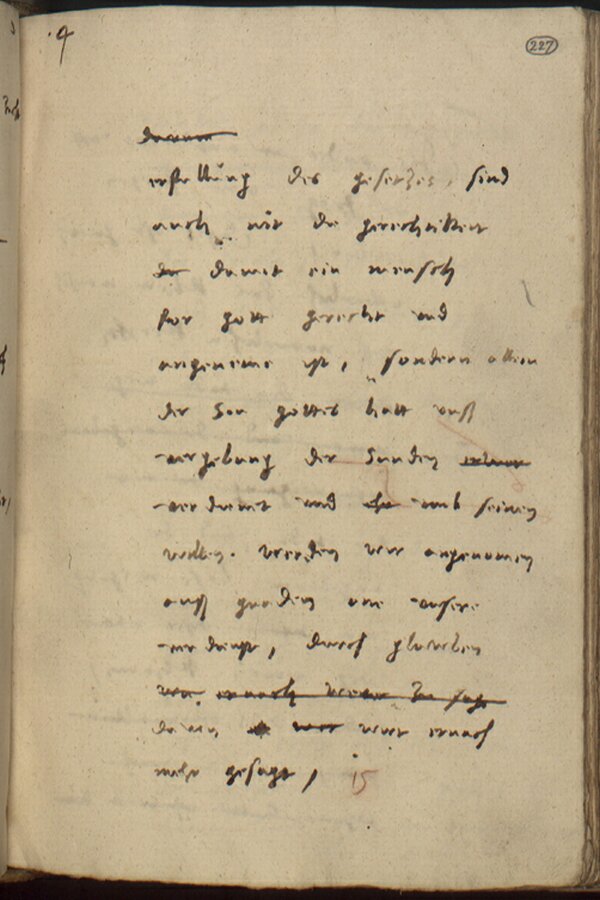 4
227
darum
erfullung des gesetzes, sind
auch nit die gerechtikeit
der damit ein mensch
for gott gerecht und
angeneme ist, sondern allein
der Son gottes hatt unß
vergebung der Sunden
verdienet und umb seinen
willen werden wir angenomen
auß gnaden one unsere
verdienst, durch glawben
davon wirt ernach
mehr gesagt, 15